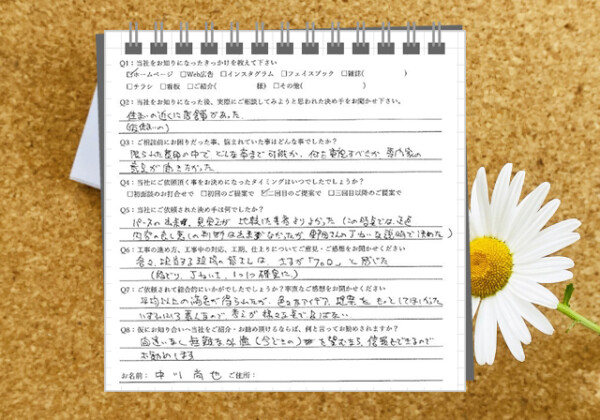 Q1：当社をお知りになったきっかけを教えて下さい
☑ホームページ □Web広告 □インスタグラム □フェイスブック □雑誌( )
□チラシ □看板 □ご紹介( 様) □その他( )
Q2：当社をお知りになった後、実際にご相談してみようと思われた決め手をお聞かせ下さい。
住まいの近くに店舗があった。
Q3：ご相談前にお困りだった事、悩まれていた事はどんな事でしたか？
限られた費用の中で どんな事まで可能か、何を重視すべきか 専門家の
意見が聞きたかった
Q4：当社にご依頼頂く事をお決めになったタイミングはいつでしたでしょうか？
□初面談のお打合せで □初回のご提案で ☑二回目のご提案で □三回目以降のご提案で
Q5：当社にご依頼された決め手は何でしたか？
パースの出来栄、見栄えが 比較した業者よりよかった（この時点では
内容の良し悪しの判断は出来なかったが、 丁ねいな説明で決めた）
Q6：工事の進め方、工事中の対応、工期、仕上りについてご意見・ご感想をお聞かせください
各々 担当する現場の皆さんは、さすが「プロ」と感じた
（段どり、丁ねいさ、1つ1つ確実に）
Q7：ご依頼されて総合的にいかがでしたでしょうか？率直なご感想をお聞かせください
平均以上の満足が得られたが、色々なアイデア、提案を もっとしてほしかった
Q8：仮にお知り合いへ当社をご紹介・お勧め頂けるならば、何と言ってお勧めされますか？
間違いなく 無難な外構（今どきの）を望むなら、信頼もできるので
お勧めします
お名前：中川 尚也 ご住所：